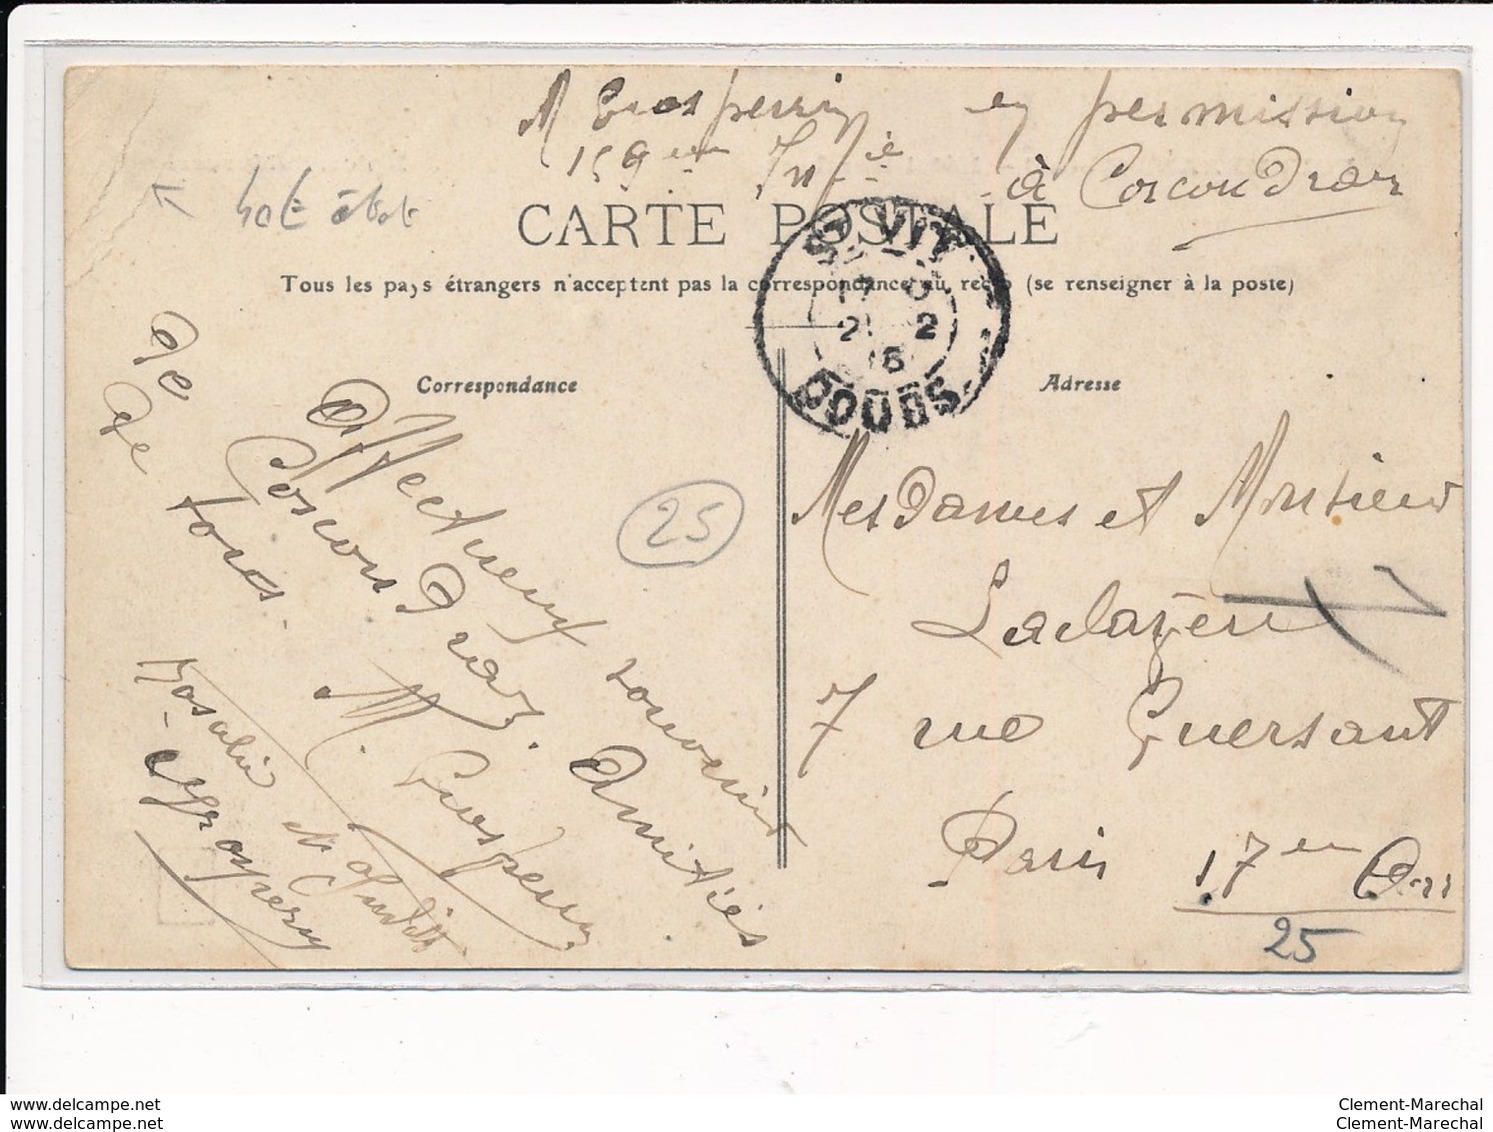 M
en permission
159ème Infie
à Corcondray
→ bot état
CARTE POSTALE
Tous les pays étrangers n'acceptent pas la correspondance au recto (se renseigner à la poste)
ST VIT
17
2 2
16
DOUBS
Correspondance
Adresse
Affectueux souvenir
de Corcondray. Amitiés
de tous.
M.
Rosalie et Judith
25
Mesdames et Monsieur
7 rue Guersant
Paris 17em Arr
25
www.delcampe.net
www.delcampe.net
Clement-Marechal
Clement-Marechal